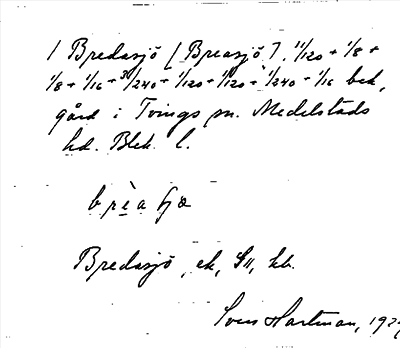 1 Bredasjö [Breasjö], 11/120 + 1/8 +
1/8 + 1/16 + 31/240 + 1/120 + 1/120 + 1/240 + 1/16 bek,
gård i Tvings sn. Medelstads
hd. Blek. l.
brèa
Bredasjö, ek, kb.
Sven Hartman, 192